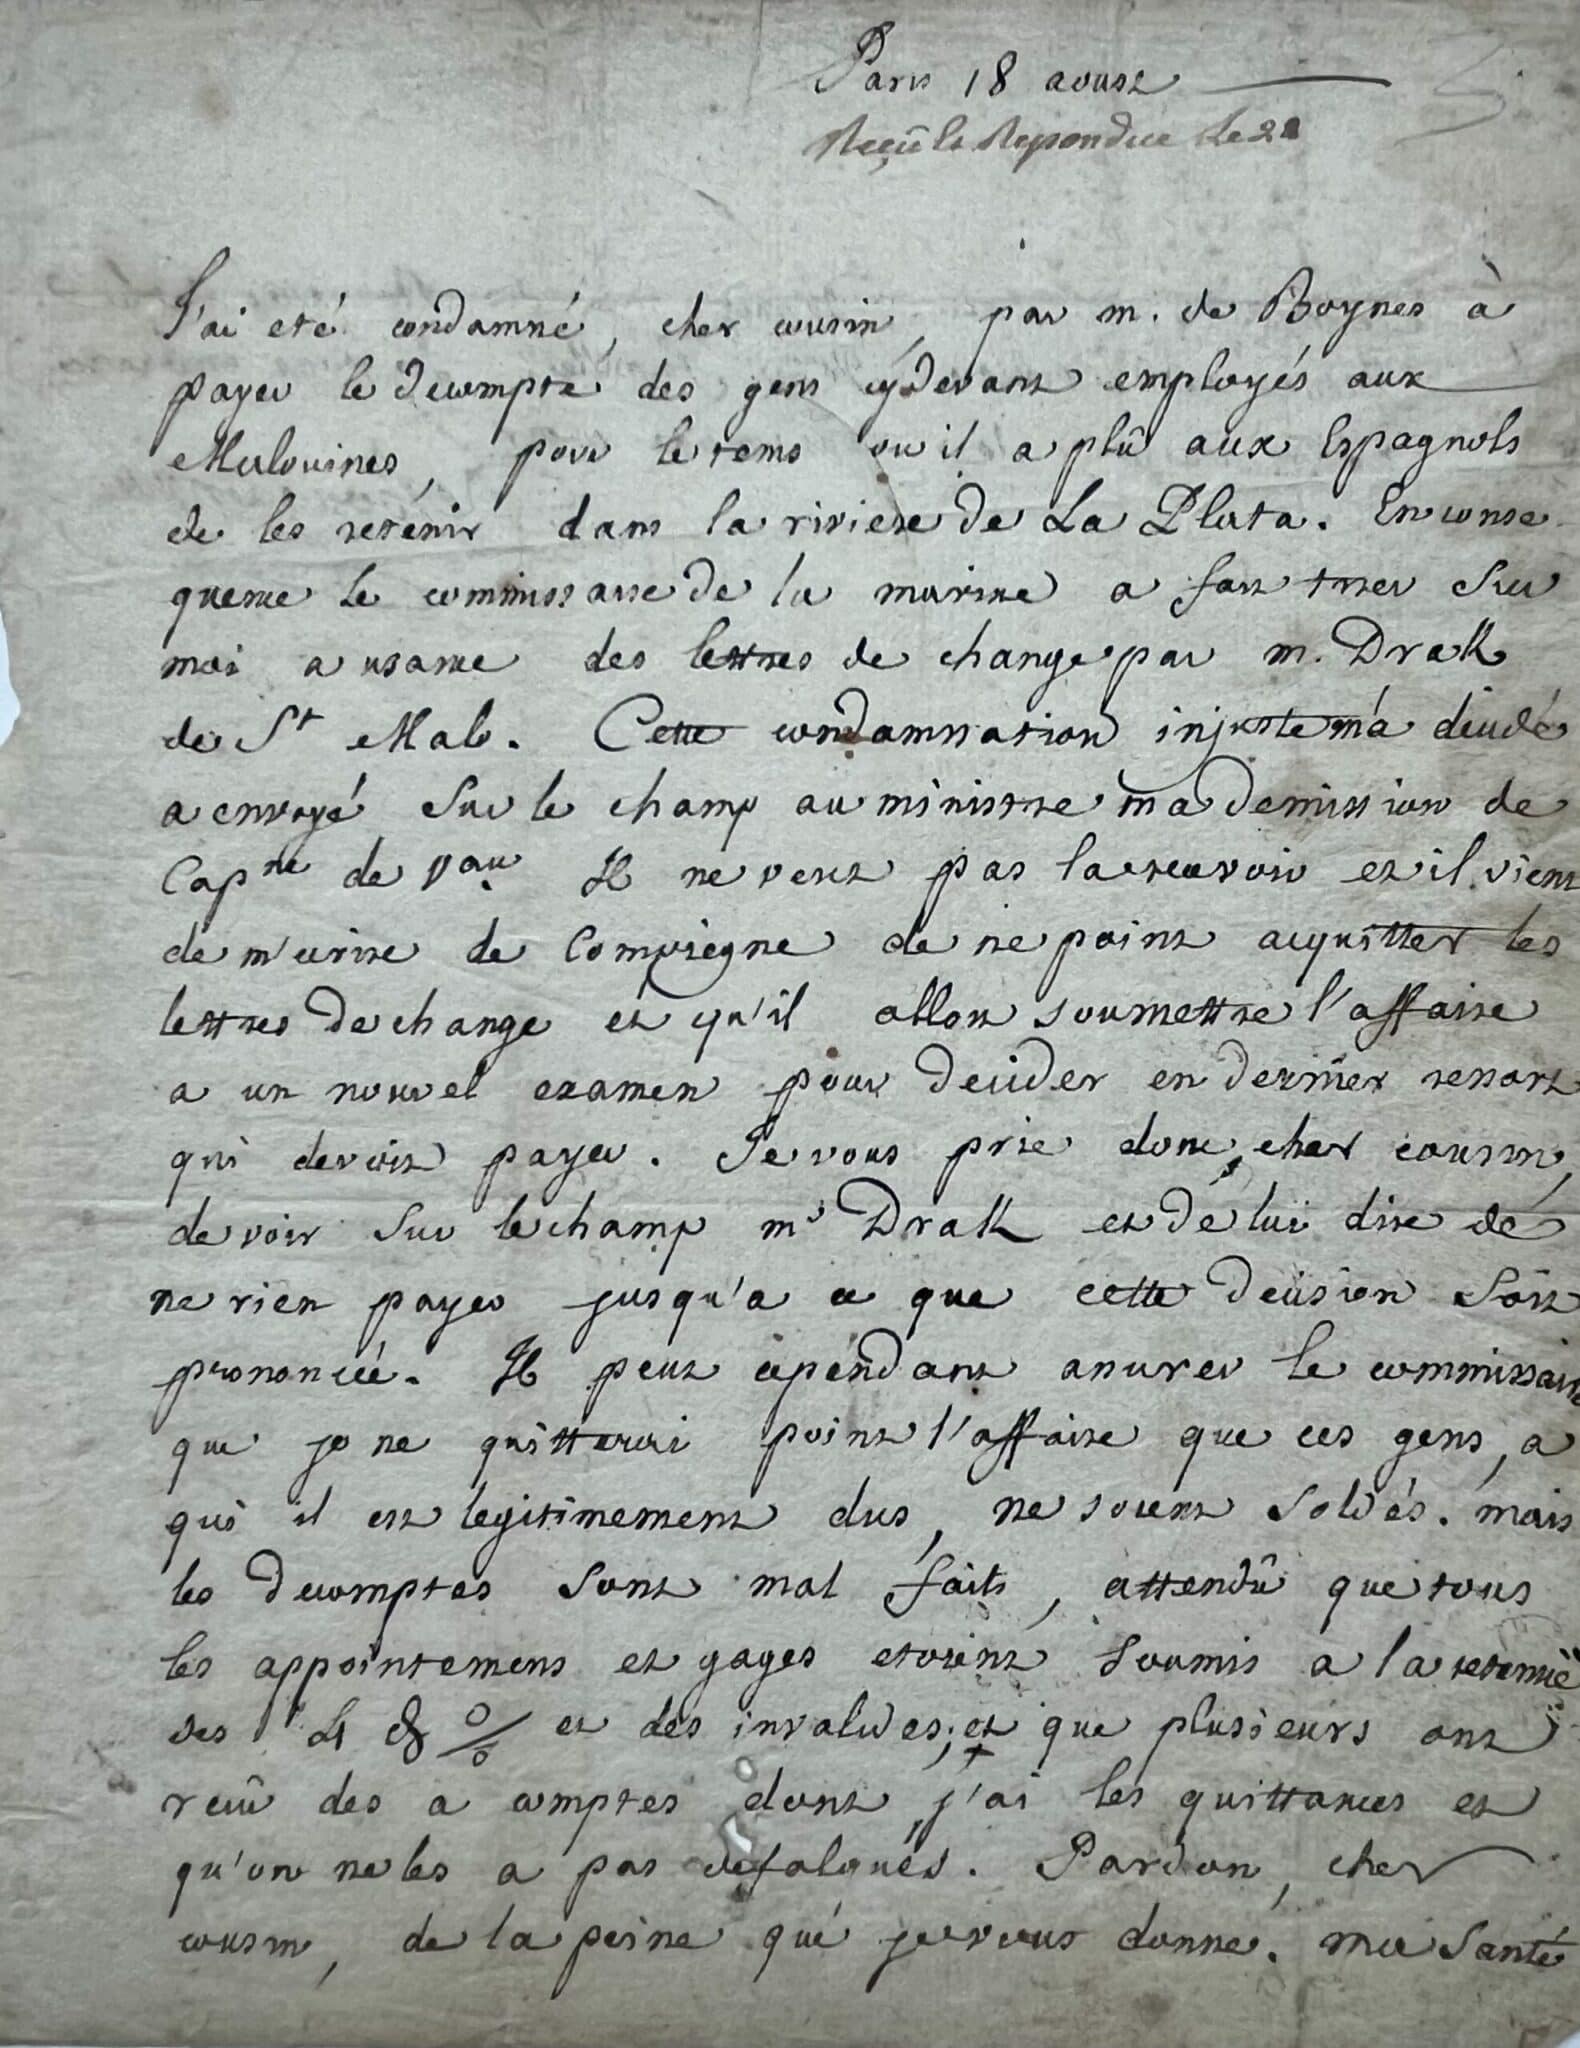 Paris 18 aoust
Reçû et Repondue Le 22
J'ai eté condamné, cher cousin, par m. de Boynes à
payer le decompte des gens cÿdevant employés aux
Malouines, pour le tems ou il a plû aux Espagnols
de les retenir dans la riviere de La Plata. En conse
quence le commissaire de la marine a fait tirer sur
moi a usance des lettres de change par m. Drak
de St Malo. Cette condamnation injuste m'a decidé
a envoyé sur le champ au ministre ma demission de
Capne de vau. Il ne veut pas la recevoir et il vient
de m'ecrire de Compiegne de ne point acquitter les
lettres de change et qu'il alloit soumettre l'affaire
a un nouvel examen pour decider en dernier ressort
qui devoit payer. Je vous prie donc, cher cousin,
de voir sur le champ mr Drak et de lui dire de
ne rien payer jusqu'a ce que cette decision soit
prononcée. Il peut cependant assurer le commissaire
que je ne quitterai point l'affaire que ces gens, a
qui il est legitimement dus, ne soient soldés. mais
les decomptes sont mal faits, attendû que tous
les appointemens et gages etoient soumis a la retenüe
des 4 d o/o et des invalides; et que plusieurs ont
recû des a comptes dont j'ai les quittances et
qu'on ne les a pas defalqués. Pardon, cher
cousin, de la peine que je vous donne. ma santé